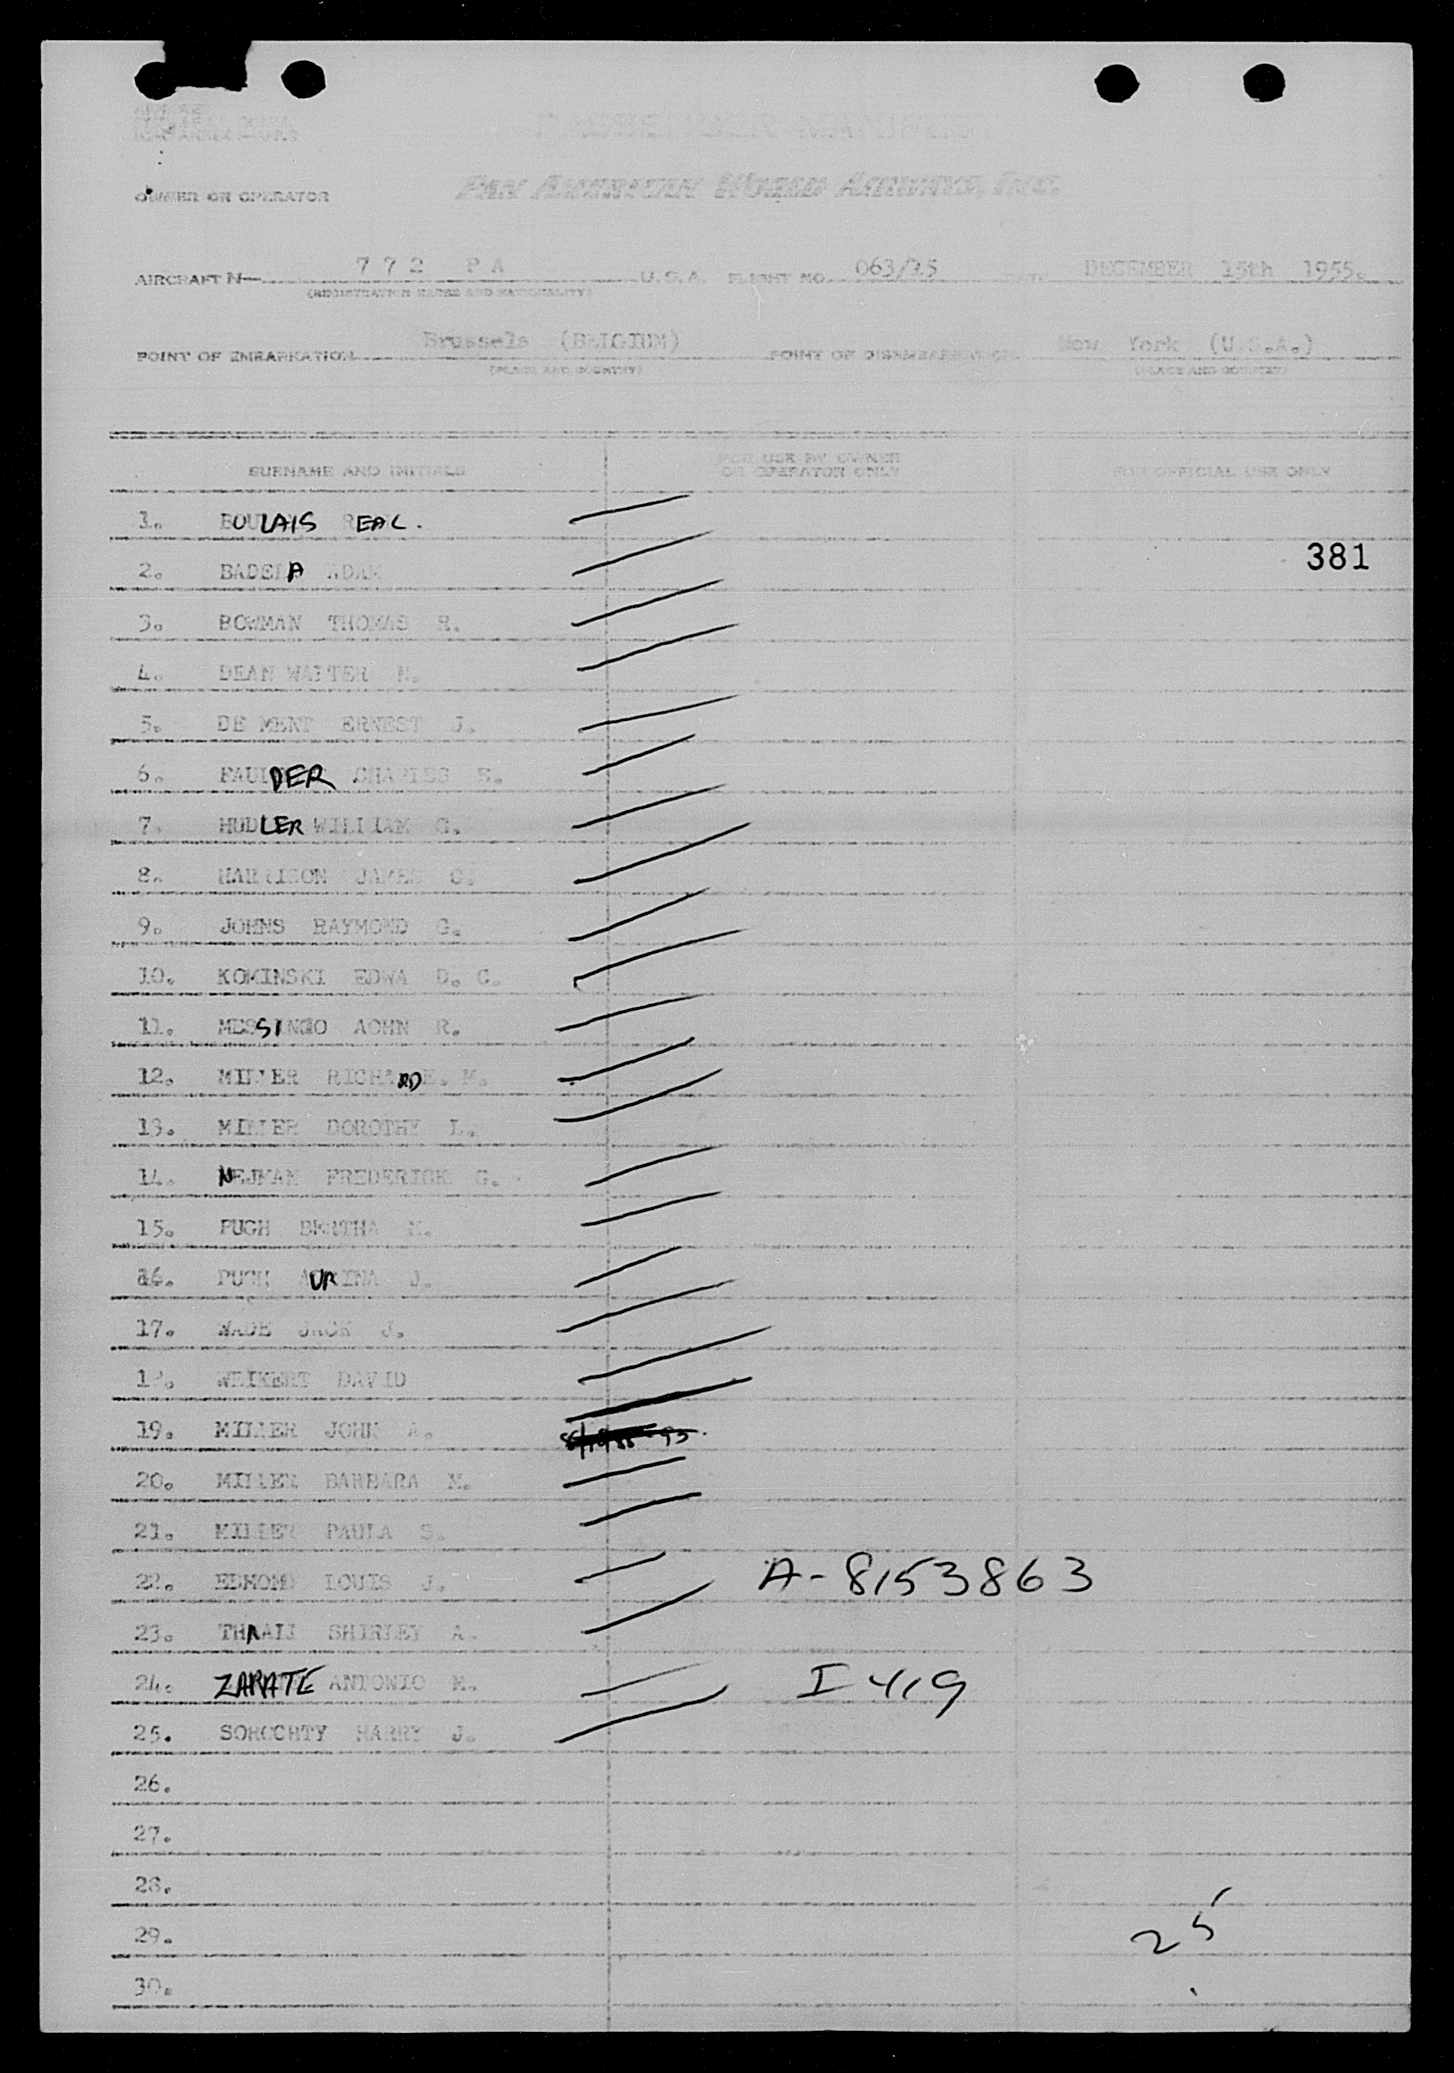 PASSENGER MANIFEST
OWNER OR OPERATOR PAN AMERICAN WORLD AIRWAYS, INC.
AIRCRAFT N 772 PA U.S.A. FLIGHT NO. 063/15 DATE DECEMBER 15th 1955.
(REGISTRATION MARKS AND NATIONALITY)
POINT OF EMBARKATION Brussels (BELGIUM) POINT OF DISEMBARKATION New York (U.S.A.)
(PLACE AND COUNTRY) (PLACE AND COUNTRY)
SURNAME AND INITIALS FOR USE BY OWNER OR OPERATOR ONLY FOR OFFICIAL USE ONLY
1. BOULAIS REAL.
381
2. BADELA ADAM
3. BOWMAN THOMAS R.
4. DEAN WALTER N.
5. DE MENT ERNEST J.
6. FAULDER CHARLES E.
7. HUDLER WILLIAM G.
8. HARRISON JAMES C.
9. JOHNS RAYMOND G.
10. KOMINSKI EDWA D. C.
11. MESSINGO AOHN R.
12. MILLER RICHARD E. M.
13. MILLER DOROTHY L.
14. NEJMAN FREDERICK G.
15. PUGH BERTHA M.
16. PUGH AURINA J.
17. WADE JACK J.
18. WEIKERT DAVID
19. MILLER JOHN A.
20. MILLER BARBARA M.
21. MILLER PAULA S.
22. EDMOND LOUIS J. A-8153863
23. THRAIL SHIRLEY A.
24. ZARATE ANTONIO M. I 419
25. SOROCHTY HARRY J.
26.
27.
28.
29.
25
30.